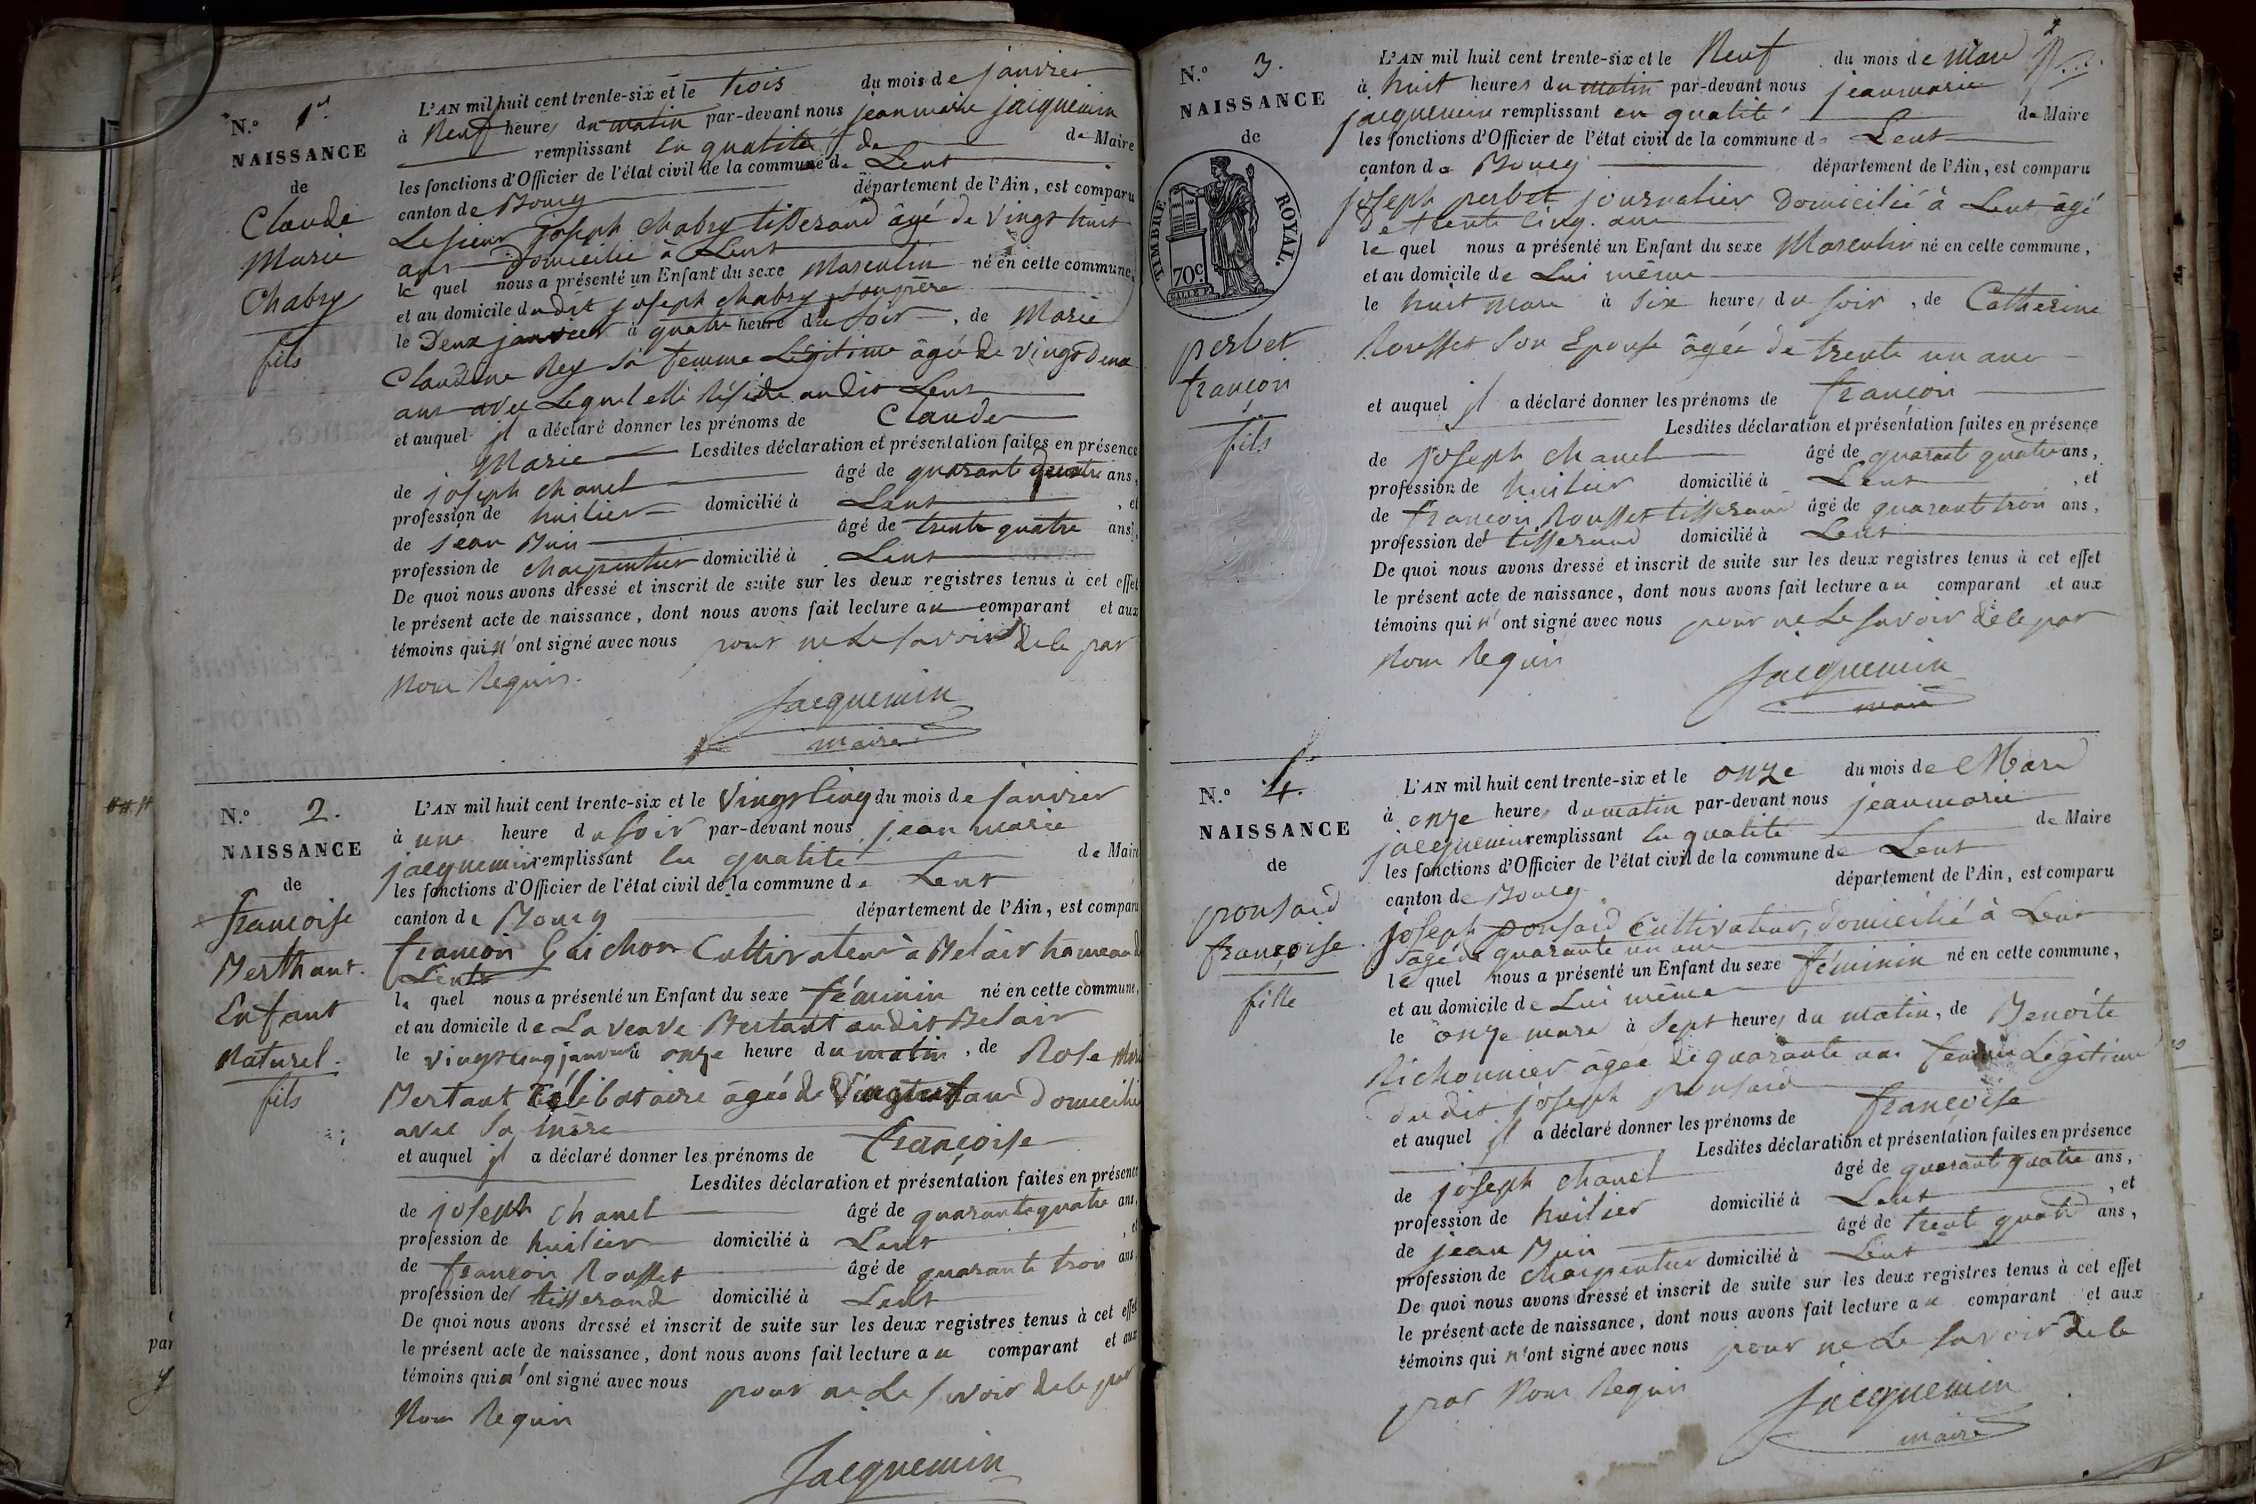 N.º 1er
NAISSANCE
de
Claude
Marie
Chabry
fils
L'AN mil huit cent trente-six et le trois du mois de janvier
à Neuf heures du matin par-devant nous jeanmarie jacquemin
remplissant en qualité de de Maire
les fonctions d'Officier de l'état civil de la commune de Lent
canton de Bourg département de l'Ain, est comparu
Le sieur joseph chabry tisserand âgé de vingt huit
ans domicilié à Lent
le quel nous a présenté un Enfant du sexe Masculin né en cette commune,
et au domicile du dit joseph chabry son père
le Deux janvier à quatre heure du soir, de Marie
Claudine Rey sa femme Légitime âgée de vingt Deux
ans avec Lequel elle Réside au dit Lent
et auquel il a déclaré donner les prénoms de Claude
Marie Lesdites déclaration et présentation faites en présence
de joseph chanel âgé de quarante quatre ans,
profession de huilier domicilié à Lent, et
de jean Buis âgé de trente quatre ans,
profession de charpentier domicilié à Lent
De quoi nous avons dressé et inscrit de suite sur les deux registres tenus à cet effet
le présent acte de naissance, dont nous avons fait lecture au comparant et aux
témoins qui n'ont signé avec nous pour ne Le savoir de ce par
Nous Requis.
Jacquemin
maire
N.º 2.
NAISSANCE
de
françoise
Berthant.
Enfant
Naturel.
fils
L'AN mil huit cent trente-six et le Vingt Cinq du mois de janvier
à une heure du soir par-devant nous jean marie
jacquemin remplissant en qualité de Maire
les fonctions d'Officier de l'état civil de la commune de Lent
canton de Bourg département de l'Ain, est comparu
françois Guichon Cultivateur à Belair hameau de
Lent
le quel nous a présenté un Enfant du sexe féminin né en cette commune,
et au domicile de La veuve Bertant au dit Belair
le vingt cinq janvier à onze heure du matin, de Rose Marie
Bertant Célibataire âgée de Vingt neuf ans Domicilié
avec sa mère
et auquel il a déclaré donner les prénoms de françoise
Lesdites déclaration et présentation faites en présence
de joseph chanel âgé de quarante quatre ans,
profession de huilier domicilié à Lent, et
de françois Rousset âgé de quarante trois ans
profession de tisserand domicilié à Lent
De quoi nous avons dressé et inscrit de suite sur les deux registres tenus à cet effet
le présent acte de naissance, dont nous avons fait lecture au comparant et aux
témoins qui n'ont signé avec nous pour ne Le savoir de ce par
Nous Requis
Jacquemin
N.º 3.
NAISSANCE
de
TIMBRE ROYAL.
70c
perbet
françois
fils
L'AN mil huit cent trente-six et le Neuf du mois de Mars
à huit heures du matin par-devant nous jeanmarie
jacquemin remplissant en qualité de Maire
les fonctions d'Officier de l'état civil de la commune de Lent
canton de Bourg département de l'Ain, est comparu
joseph perbet journalier Domicilié à Lent âgé
de trente cinq ans
le quel nous a présenté un Enfant du sexe Masculin né en cette commune,
et au domicile de Lui même
le huit Mars à six heures du soir, de Catherine
Rousset Son Epouse âgée de trente un ans
et auquel il a déclaré donner les prénoms de françois
Lesdites déclaration et présentation faites en présence
de joseph chanel âgé de quarante quatre ans,
profession de huilier domicilié à Lent, et
de françois Rousset tisserand âgé de quarante trois ans,
profession de tisserand domicilié à Lent
De quoi nous avons dressé et inscrit de suite sur les deux registres tenus à cet effet
le présent acte de naissance, dont nous avons fait lecture au comparant et aux
témoins qui n'ont signé avec nous pour ne Le savoir de ce par
Nous Requis
Jacquemin
maire
N.º 4.
NAISSANCE
de
ponsard
françoise
fille
L'AN mil huit cent trente-six et le onze du mois de Mars
à onze heures du matin par-devant nous jeanmarie
jacquemin remplissant en qualité de Maire
les fonctions d'Officier de l'état civil de la commune de Lent
canton de Bourg département de l'Ain, est comparu
joseph ponsard Cultivateur, domicilié à Lent
âgé de quarante un ans
le quel nous a présenté un Enfant du sexe féminin né en cette commune,
et au domicile de Lui même
le onze mars à sept heures du matin, de Benoite
Richonnier âgée de quarante ans femme Légitime
du dit joseph ponsard
et auquel il a déclaré donner les prénoms de françoise
Lesdites déclaration et présentation faites en présence
de joseph chanel âgé de quarante quatre ans,
profession de huilier domicilié à Lent, et
de jean Buis âgé de trente quatre ans,
profession de charpentier domicilié à Lent
De quoi nous avons dressé et inscrit de suite sur les deux registres tenus à cet effet
le présent acte de naissance, dont nous avons fait lecture au comparant et aux
témoins qui n'ont signé avec nous pour ne Le savoir de ce
par Nous Requis
Jacquemin
maire